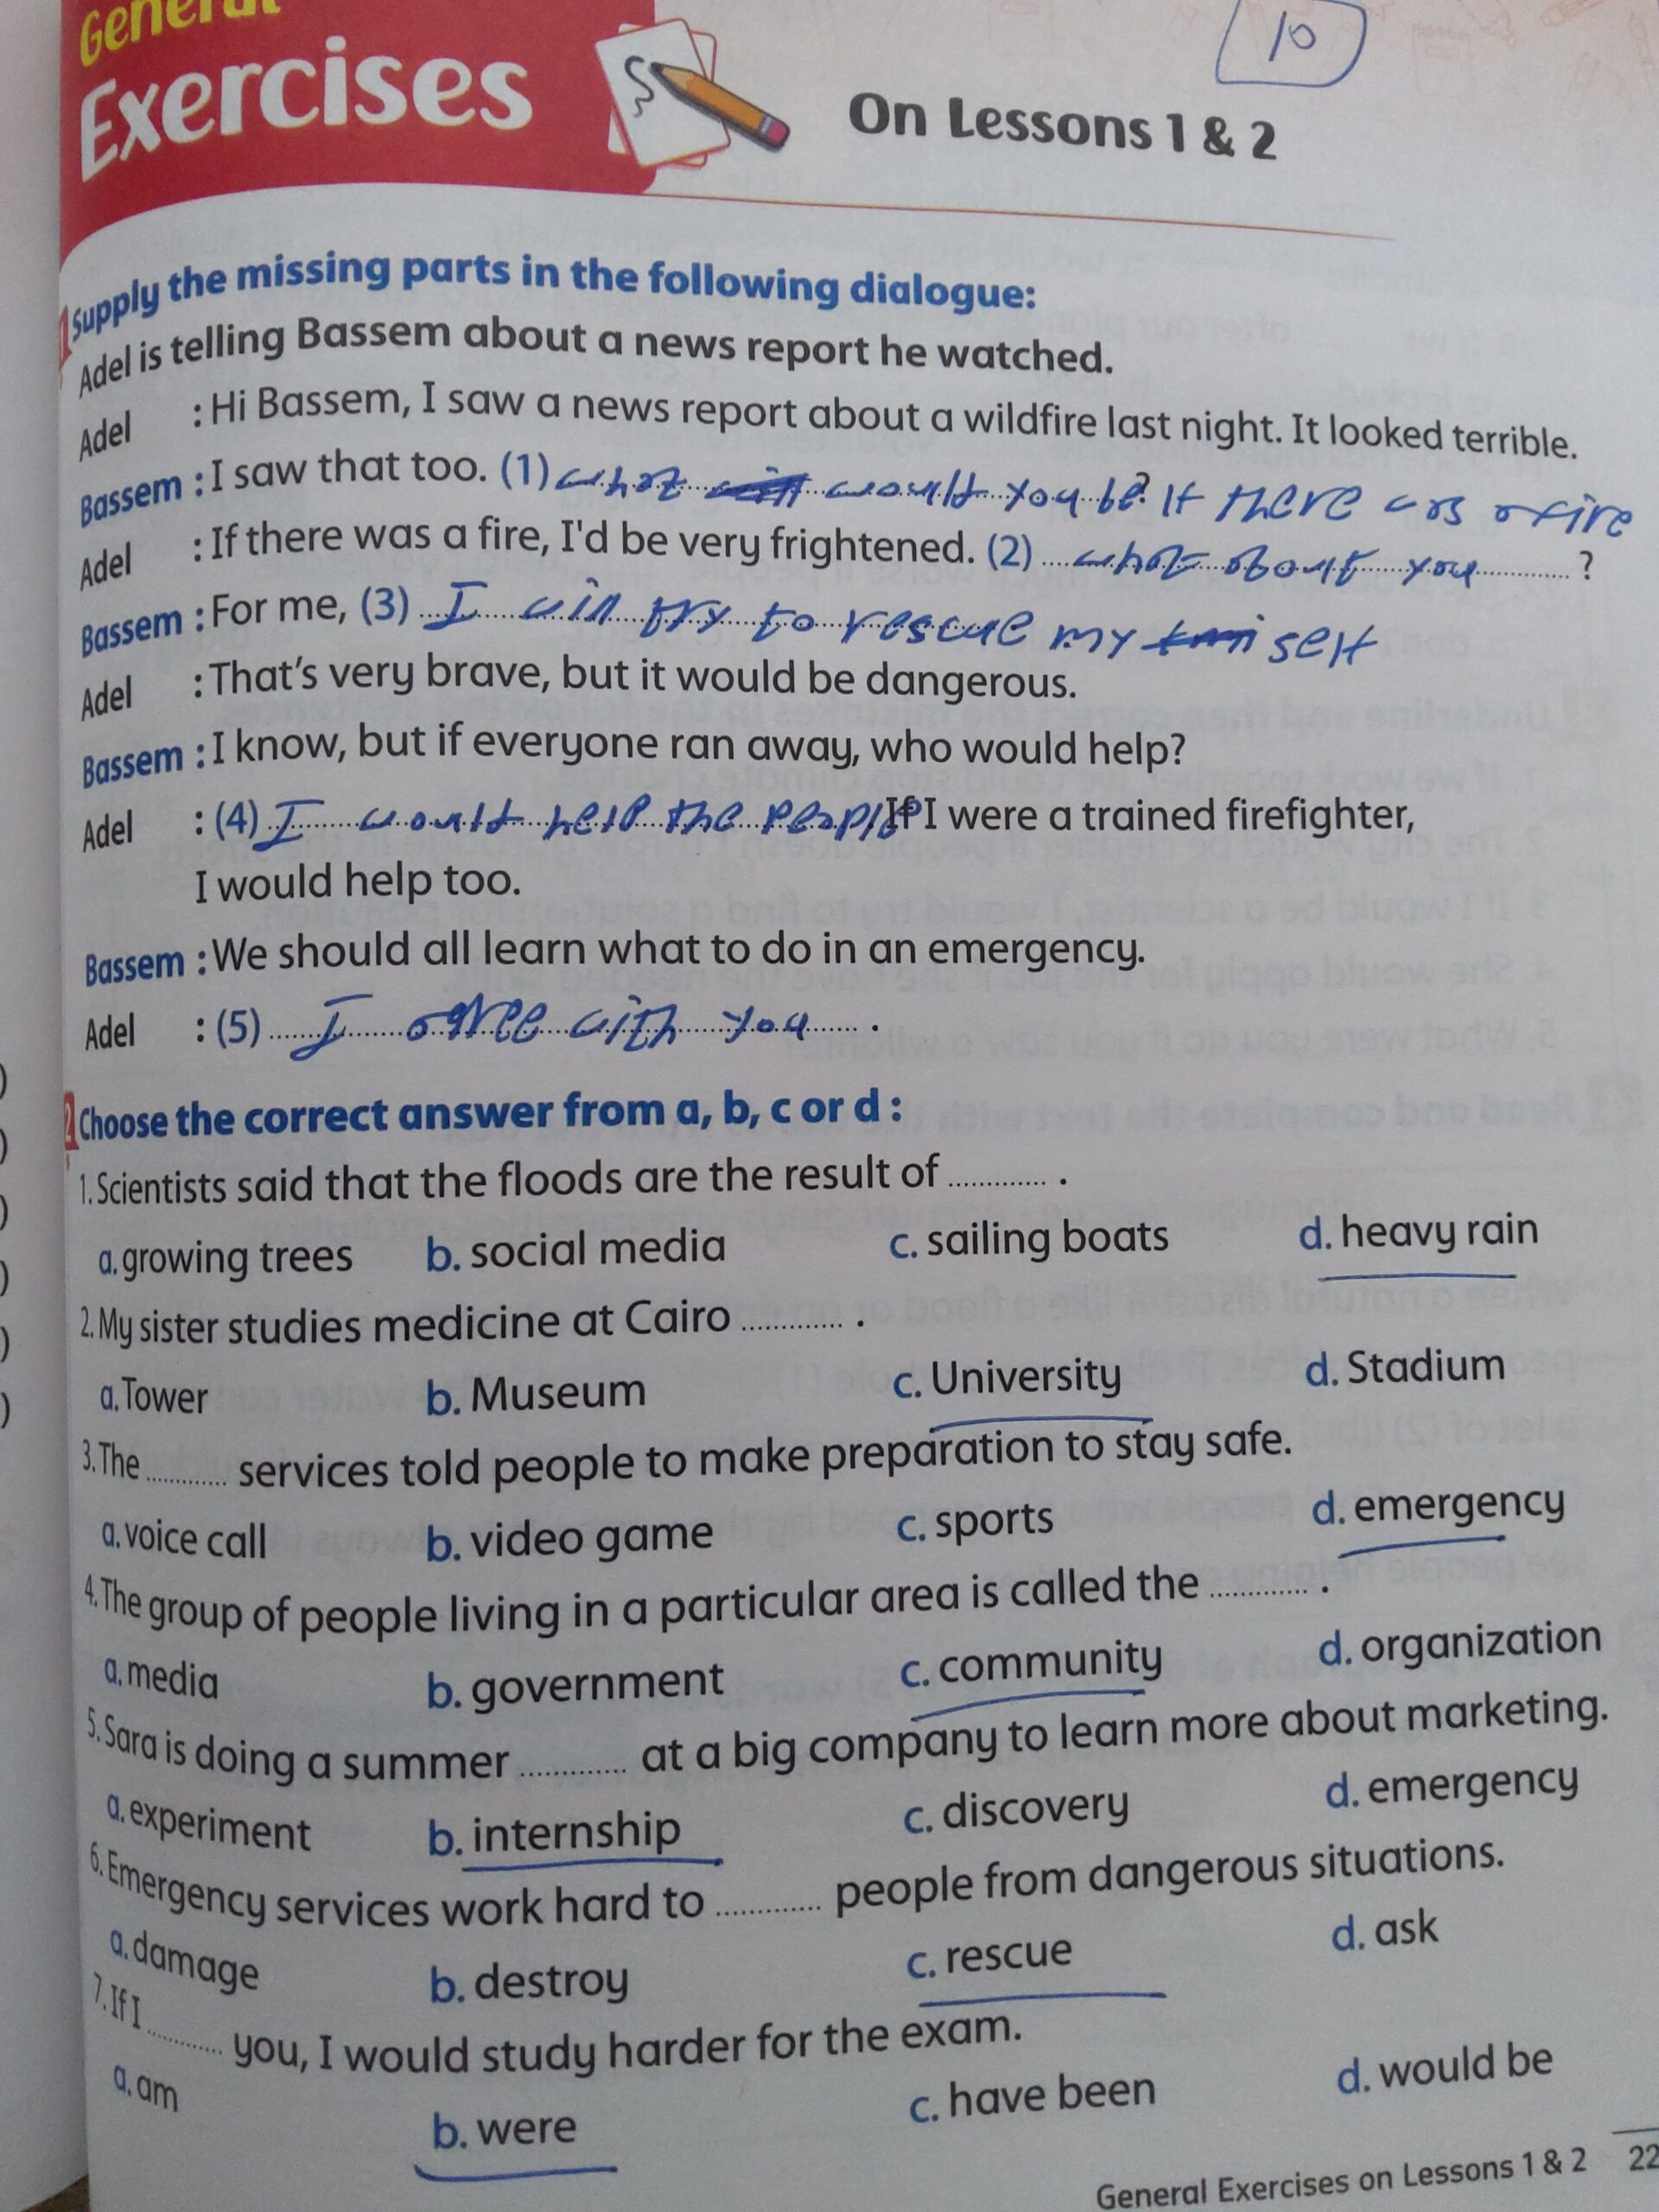 General
Exercises
10
On Lessons 1 & 2
1 Supply the missing parts in the following dialogue:
Adel is telling Bassem about a news report he watched.
Adel : Hi Bassem, I saw a news report about a wildfire last night. It looked terrible.
Bassem : I saw that too. (1) what would you be? If there was a fire
Adel : If there was a fire, I'd be very frightened. (2) what about you ?
Bassem : For me, (3) I will try to rescue my self
Adel : That's very brave, but it would be dangerous.
Bassem : I know, but if everyone ran away, who would help?
Adel : (4) I would help the people, If I were a trained firefighter,
I would help too.
Bassem : We should all learn what to do in an emergency.
Adel : (5) I agree with you .
2 Choose the correct answer from a, b, c or d :
1. Scientists said that the floods are the result of ............ .
a. growing trees b. social media c. sailing boats d. heavy rain
2. My sister studies medicine at Cairo ............ .
a. Tower b. Museum c. University d. Stadium
3. The ............ services told people to make preparation to stay safe.
a. voice call b. video game c. sports d. emergency
4. The group of people living in a particular area is called the ............ .
a. media b. government c. community d. organization
5. Sara is doing a summer ............ at a big company to learn more about marketing.
a. experiment b. internship c. discovery d. emergency
6. Emergency services work hard to ............ people from dangerous situations.
a. damage b. destroy c. rescue d. ask
7. If I ............ you, I would study harder for the exam.
a. am b. were c. have been d. would be
General Exercises on Lessons 1 & 2 22